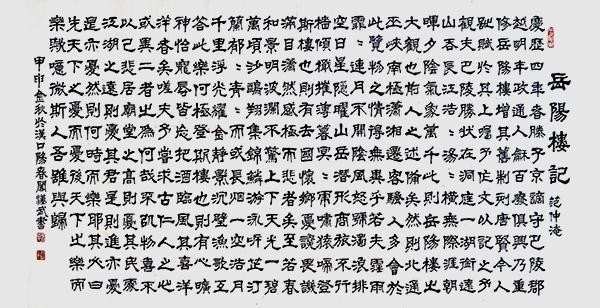 岳陽樓記 范仲淹
慶歷四年春滕子京謫守巴陵郡
越明年政通人和百廢俱興乃重
修岳陽樓增其舊制刻唐賢今人
詩賦於其上屬予作文以記之予
觀夫巴陵勝狀在洞庭一湖銜遠
山吞長江浩浩湯湯橫無際涯朝
暉夕陰氣象萬千此則岳陽樓之
大觀也前人之述備矣然則北通
巫峽南極瀟湘遷客騷人多會於
此覽物之情得無異乎若夫霪雨
霏霏連月不開陰風怒號濁浪排
空日星隱曜山岳潛形商旅不行
檣傾楫摧薄暮冥冥虎嘯猿啼登
斯樓也則有去國懷鄉憂讒畏譏
滿目蕭然感極而悲者矣至若春
和景明波瀾不驚上下天光一碧
萬頃沙鷗翔集錦鱗游泳岸芷汀
蘭郁郁青青而或長煙一空皓月
千里浮光耀金靜影沉璧漁歌互
答此樂何極登斯樓也則有心曠
神怡寵辱皆忘把酒臨風其喜洋
洋者矣嗟夫予嘗求古仁人之心
或異二者之為何哉不以物喜不
以己悲居廟堂之高則憂其民處
江湖之遠則憂其君是進亦憂退
是亦憂然則何時而樂耶其必曰
先天下之憂而憂後天下之樂而
樂歟噫微斯人吾誰與歸
甲申金秋於漢口陽春閣謹武書